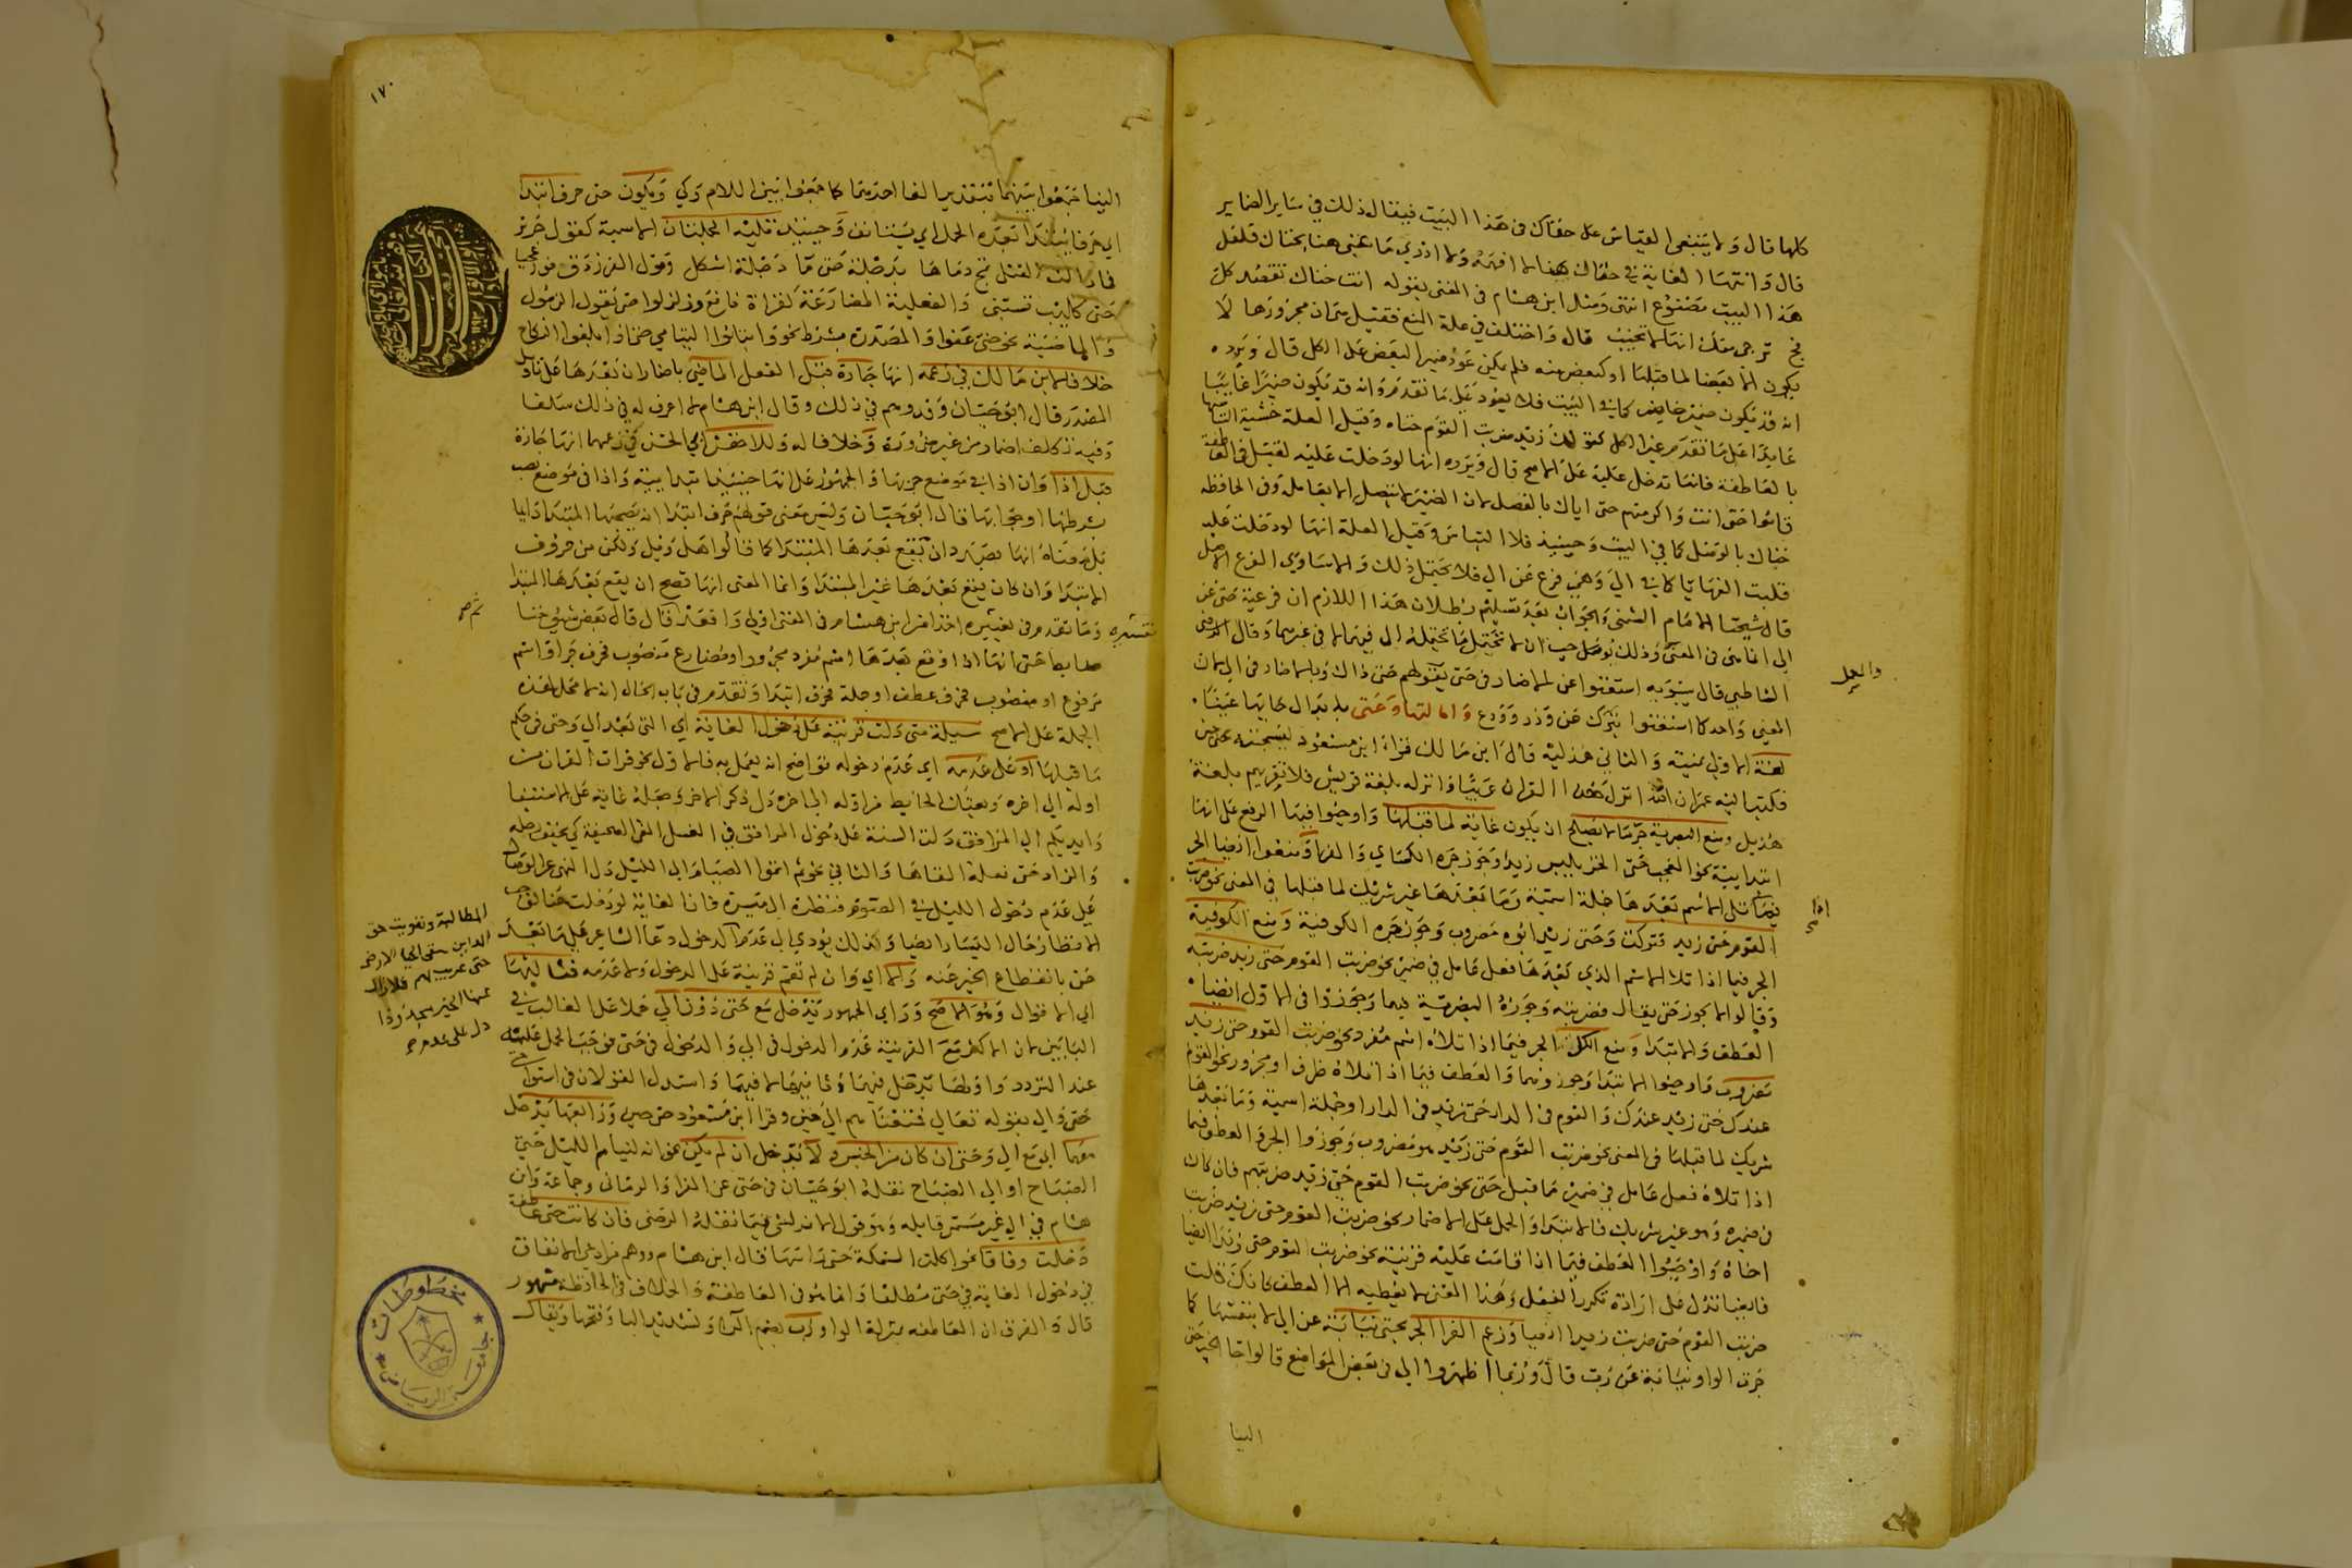 كلها قال ولا ينبغي القياس على حتاك في هذا البيت فيقال ذلك في ساير الضماير
قال وانتها الغاية في حتاك هنا لا افهمه ولا ادري ما عنى هنا بحتاك فلعل
هذا البيت مصنوع انتهى ومثل ابن هشام في المغني بقوله اتت حتاك تقصد كل
فج ترجي منك انها لا تخيب قال واختلف في علة المنع فقيل لان مجرورها لا
يكون الا بعضا لما قبلها او كبعض منه فلم يمكن عود ضمير البعض على الكل قال ويرده
انه قد يكون ضميرا حاضرا كما في البيت فلا يعود على ما تقدم وانه قد يكون ضميرا غايبا
عايدا على ما تقدم غير الكل كقولك زيد ضربت القوم حتاه وقيل العلة خشية التباسها
بالعاطفة فانها تدخل عليه على الاصح قال ويرده انها لو دخلت عليه لقيل في العاطفة
قاموا حتى انت واكرمتهم حتى اياك بالفصل لان الضمير لا يتصل الا بعامله وفي الخافظة
حتاك بالوصل كما في البيت وحينيذ فلا التباس وقيل العلة انها لو دخلت عليه
قلبت الفها يا كما في الى وهي فرع عن الى فلا تحتمل ذلك والا ساوى الفرع الاصل
قال شيخنا الامام الشمني والجواب بعد تسليم بطلان هذا اللازم ان فرعية حتى عن
الى انما هي في المعنى وذلك لا يوجب ان لا تحتمل ما تحتمله الى فيما لا في غيرهما وقال
الشاطبي قال سيبويه استغنوا عن الاضمار في حتى بقولهم حتى ذاك وبالاضمار في الى لان
المعنى واحد كما استغنوا بترك عن وذر وودع وامالتها وعتى بابدال حايها عينا
لغة الاولى يمنية والثاني هذلية قال ابن مالك قراة ابن مسعود ليسجننه عتى حين
فكتب اليه عمر ان الله انزل هذا القران عربيا وانزله بلغة قريش فلا تقريهم بلغة
هذيل ومنع البصرية جر ما لا يصلح ان يكون غاية لما قبلها واوجبوا فيها الرفع على انها
ابتدايية نحو العجب حتى الخز يلبس زيد وجوز جره الكساي والفرا ومنعوا ايضا الجر
فيما تلى الاسم بعدها جملة اسمية وما بعدها غير شريك لما قبلها في المعنى نحو ضربت
القوم حتى زيد فتركت وحتى زيد ابوه مضروب وجوز جره الكوفية ومنع الكوفية
الجر فيما اذا تلا الاسم الذي بعدها فعل عامل في ضميره نحو ضربت القوم حتى زيد ضربته
وقالوا لا يجوز حتى يقال فضربته وجوزه البصرية فيهما وجوزوا في الاول ايضا
العطف والابتدا ومنع الكل الجر فيما اذا تلاه اسم مفرد نحو ضربت القوم حتى زيد
مضروب واوجبوا الابتدا وجوزوهما والعطف فيما اذا تلاه ظرف او مجرور نحو القوم
عندك حتى زيد عندك والقوم في الدار حتى زيد في الدار او جملة اسمية وما بعدها
شريك لما قبلها في المعنى نحو ضربت القوم حتى زيد هو مضروب وجوزوا الجر والعطف فيما
اذا تلاه فعل عامل في ضمير ما قبل حتى نحو ضربت القوم حتى زيد ضربتهم فان كان
في ضميره وهو غير شريك فالابتدا والحمل على الاضمار نحو ضربت القوم حتى زيد ضربت
اخاه واوجبوا العطف فيما اذا قامت عليه قرينة نحو ضربت القوم حتى زيدا ايضا
فايضا تدل على ارادة تكرر الفعل وهذا المعنى لا يعطيه الا العطف كانك قلت
ضربت القوم حتى ضربت زيدا ايضا وزعم الفرا الجر بحتى نيابة عن الى لا بنفسها كما
جرت الواو نيابة عن رب قال وربما اظهروا الى في بعض المواضع قالوا جا الخبر حتى
الينا
والعمل
اذا
١٧٠
الينا جمعوا بينهما بتقدير الغا احديهما كما جمعوا بين اللام وكي ويكون حتى حرف ابتدا
اي حرفا يبتدا بعده الجمل اي يستانف وحينيذ تليه الجملتان الاسمية كقول جرير
فما زالت القتلى تمج دماها بدجلة حتى ما دجلة اشكل وقول الفرزدق فواعجبا
حتى كليب تسبني والفعلية المضارعة كقراة نافع وزلزلوا حتى يقول الرسول
والماضية نحو حتى عفوا والمصدرة بشرط نحو وابتلوا اليتامى حتى اذا بلغوا النكاح
خلافا لابن مالك في زعمه انها جارة قبل الفعل الماضي باضمار ان بعدها على تاويل
المصدر قال ابو حيان وقد وهم في ذلك وقال ابن هشام لا اعرف له في ذلك سلفا
وفيه تكلف اضمار من غير ضرورة وخلافا له وللاخفش ابي الحسن في زعمهما انها جارة
قبل اذا وان اذا في موضع جر بها والجمهور على انها حينيذ ابتدايية واذا في موضع نصب
بشرطها او جوابها قال ابو حيان وليس معنى قولهم حرف ابتدا انه يصحبها المبتدا دايما
بل معناه انها بصدد ان يقع بعدها المبتدا كما قالوا هل وبل ولكن من حروف
الابتدا وان كان يقع بعدها غير المبتدا وانما المعنى انها تصلح ان يقع بعدها المبتدا
وما تقدم في تفسيره اخذ من ابن هشام في المغني اولى واقعد قال قال بعض شيوخنا
ضابط حتى انها اذا وقع بعدها اسم مفرد مجرور او مضارع منصوب فحرف جر او اسم
مرفوع او منصوب فحرف عطف او جملة فحرف ابتدا وتقدم في باب الحال انه لا محل لهذه
الجملة على الاصح مسيلة متى دلت قرينة على دخول الغاية اي التي بعد الى وحتى في حكم
ما قبلها او على عدمه اي عدم دخوله فواضح انه يعمل به فالاول نحو قرات القران من
اوله الى اخره وبعتك الحايط من اوله الى اخره دل ذكر الاخر وجعله غاية على الاستيفا
وايديكم الى المرافق دلت السنة على دخول المرافق في الغسل القى الصحيفة كي يخفف رحله
والزاد حتى نعله القاها والثاني نحو ثم اتموا الصيام الى الليل دل النهي عن الوصال
على عدم دخول الليل في الصوم فنظرة الى ميسرة فان الغاية لو دخلت هنا لوجب
الانتظار حال اليسار ايضا وذلك يودي الى عدم
حتى بانقطاع الخير عنه والا اي وان لم تقم قرينة على الدخول ولا عدمه فثالثها
اي الاقوال وهو الاصح وراي الجمهور تدخل مع حتى دون الى حملا على الغالب في
البابين لان الاكثر مع القرينة عدم الدخول في الى والدخول في حتى فوجب الحمل عليه
عند التردد واولها تدخل فيهما وثانيها لا فيهما واستدل القولان في استوا
حتى والى بقوله تعالى فمتعناهم الى حين وقرا ابن مسعود حتى حين ورابعها يدخل
معهما اي مع الى وحتى ان كان من الجنس ولا يدخل ان لم يكن نحو انه لينام الليل حتى
الصباح او الى الصباح نقله ابو حيان في حتى عن الفرا والرماني وجماعة وابن
هشام في الى غير مسمى قايله وهو قول الاندلسي فيما نقله الرضي فان كانت حتى عاطفة
دخلت وفاقا نحو اكلت السمكة حتى راسها قال ابن هشام ووهم من ادعى الاتفاق
في دخول الغاية في حتى مطلقا وانما هو في العاطفة والخلاف في الخافظة مشهور
قال والفرق ان العاطفة بمنزلة الواو رب بضم الرا وتشديد البا وفتحها ويقال
المطالبة وتفويت حق
سقى الحيا الارض
حتى
عنها الخير مجدودا
دل على عدم
مخطوطات
جامعة الرياض